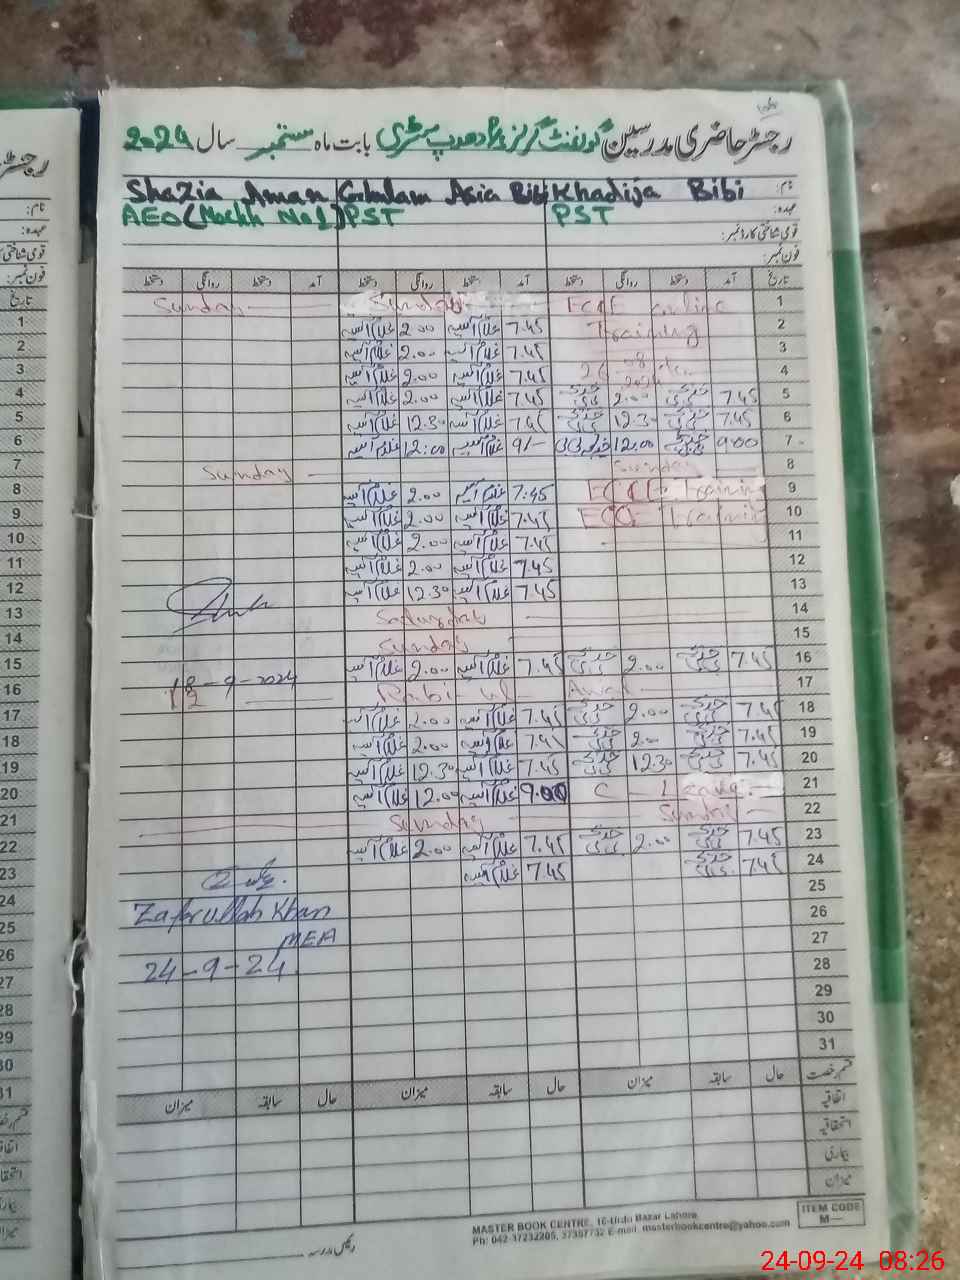 رجسٹر حاضری مدرسین گورنمنٹ گرلز بابت ماہ ستمبر سال 2024
نام: Khadija Bibi Ghulam Asia Bibi Shazia Aman
عہدہ: PST PST AEO
قومی شناختی کارڈ نمبر:
فون نمبر:
تاریخ آمد دستخط روانگی دستخط آمد دستخط روانگی دستخط آمد دستخط روانگی دستخط
1 ECCE online Sunday Sunday
2 Training 7.45 غلام آسیہ 2.00 غلام آسیہ
3 7.45 غلام آسیہ 2.00 غلام آسیہ
4 26 08 2024 7.45 غلام آسیہ 2.00 غلام آسیہ
5 7.45 خدیجہ بی بی 2.00 خدیجہ بی بی 7.45 غلام آسیہ 2.00 غلام آسیہ
6 7.45 خدیجہ بی بی 12.30 خدیجہ بی بی 7.45 غلام آسیہ 12.30 غلام آسیہ
7 9.00 خدیجہ بی بی 12.00 خدیجہ بی بی 9/- غلام آسیہ 12:00 غلام آسیہ
8 Sunday Sunday
9 ECCE Training 7:45 غلام آسیہ 2.00 غلام آسیہ
10 ECCE Training 7.45 غلام آسیہ 2.00 غلام آسیہ
11 7.45 غلام آسیہ 2.00 غلام آسیہ
12 7.45 غلام آسیہ 2.00 غلام آسیہ
13 7.45 غلام آسیہ 12.30 غلام آسیہ
14 Saturday
15 Sunday
16 7.45 خدیجہ بی بی 2.00 خدیجہ بی بی 7.45 غلام آسیہ 2.00 غلام آسیہ
17 Rabi-ul-Awal 18-9-2024
18 7.45 خدیجہ بی بی 2.00 خدیجہ بی بی 7.45 غلام آسیہ 2.00 غلام آسیہ
19 7.45 خدیجہ بی بی 2.00 خدیجہ بی بی 7.45 غلام آسیہ 2.00 غلام آسیہ
20 7.45 خدیجہ بی بی 12.30 خدیجہ بی بی 7.45 غلام آسیہ 12.30 غلام آسیہ
21 C - Leave 9.00 غلام آسیہ 12.00 غلام آسیہ
22 Sunday Sunday
23 7.45 خدیجہ بی بی 2.00 خدیجہ بی بی 7.45 غلام آسیہ 2.00 غلام آسیہ
24 7.45 خدیجہ بی بی 7.45 غلام آسیہ
25
26 Zafarullah Khan
27 MEA
28 24-9-24
29
30
31
قسم رخصت حال سابقہ میزان حال سابقہ میزان حال سابقہ میزان
اتفاقیہ
استحقاقیہ
بیماری
میزان
ITEM CODE
M—
MASTER BOOK CENTRE, 16-Urdu Bazar Lahore
Ph: 042-37232205, 37357732 E-mail: masterbookcentre@yahoo.com
رئیس مدرسہ
رجسٹر
نام:
عہدہ:
قومی شناختی
فون نمبر:
تاریخ
1
2
3
4
5
6
7
8
9
10
11
12
13
14
15
16
17
18
19
20
21
22
23
24
25
26
27
28
29
30
31
24-09-24 08:26